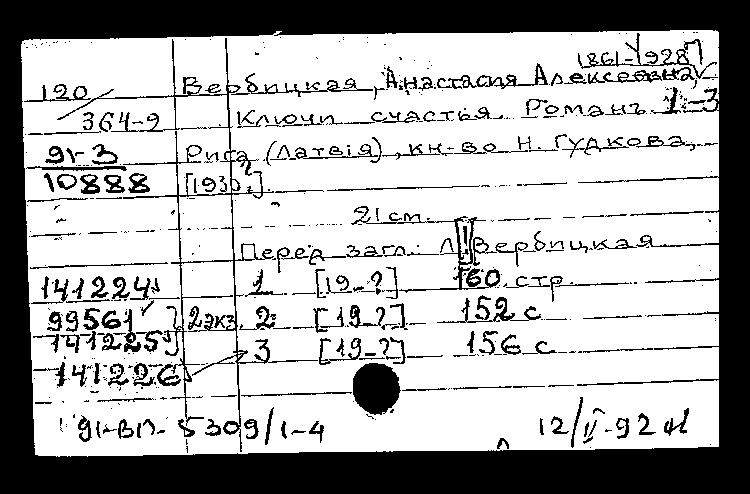 1861-1928
120 Вербицкая, Анастасия Алексеевна
364-9 Ключи счастья. Романъ. 1-3
91-3 Рига (Латвія), кн-во Н. Гудкова,
10888 [1930?].
21 см.
Перед загл.: Вербицкая
141224 1 [19-?] 160 стр
99561 2 экз. 2 [19-?] 152 с
141225 3 [19-?] 156 с
141226
91-ВП-5309/1-4 12/II-92